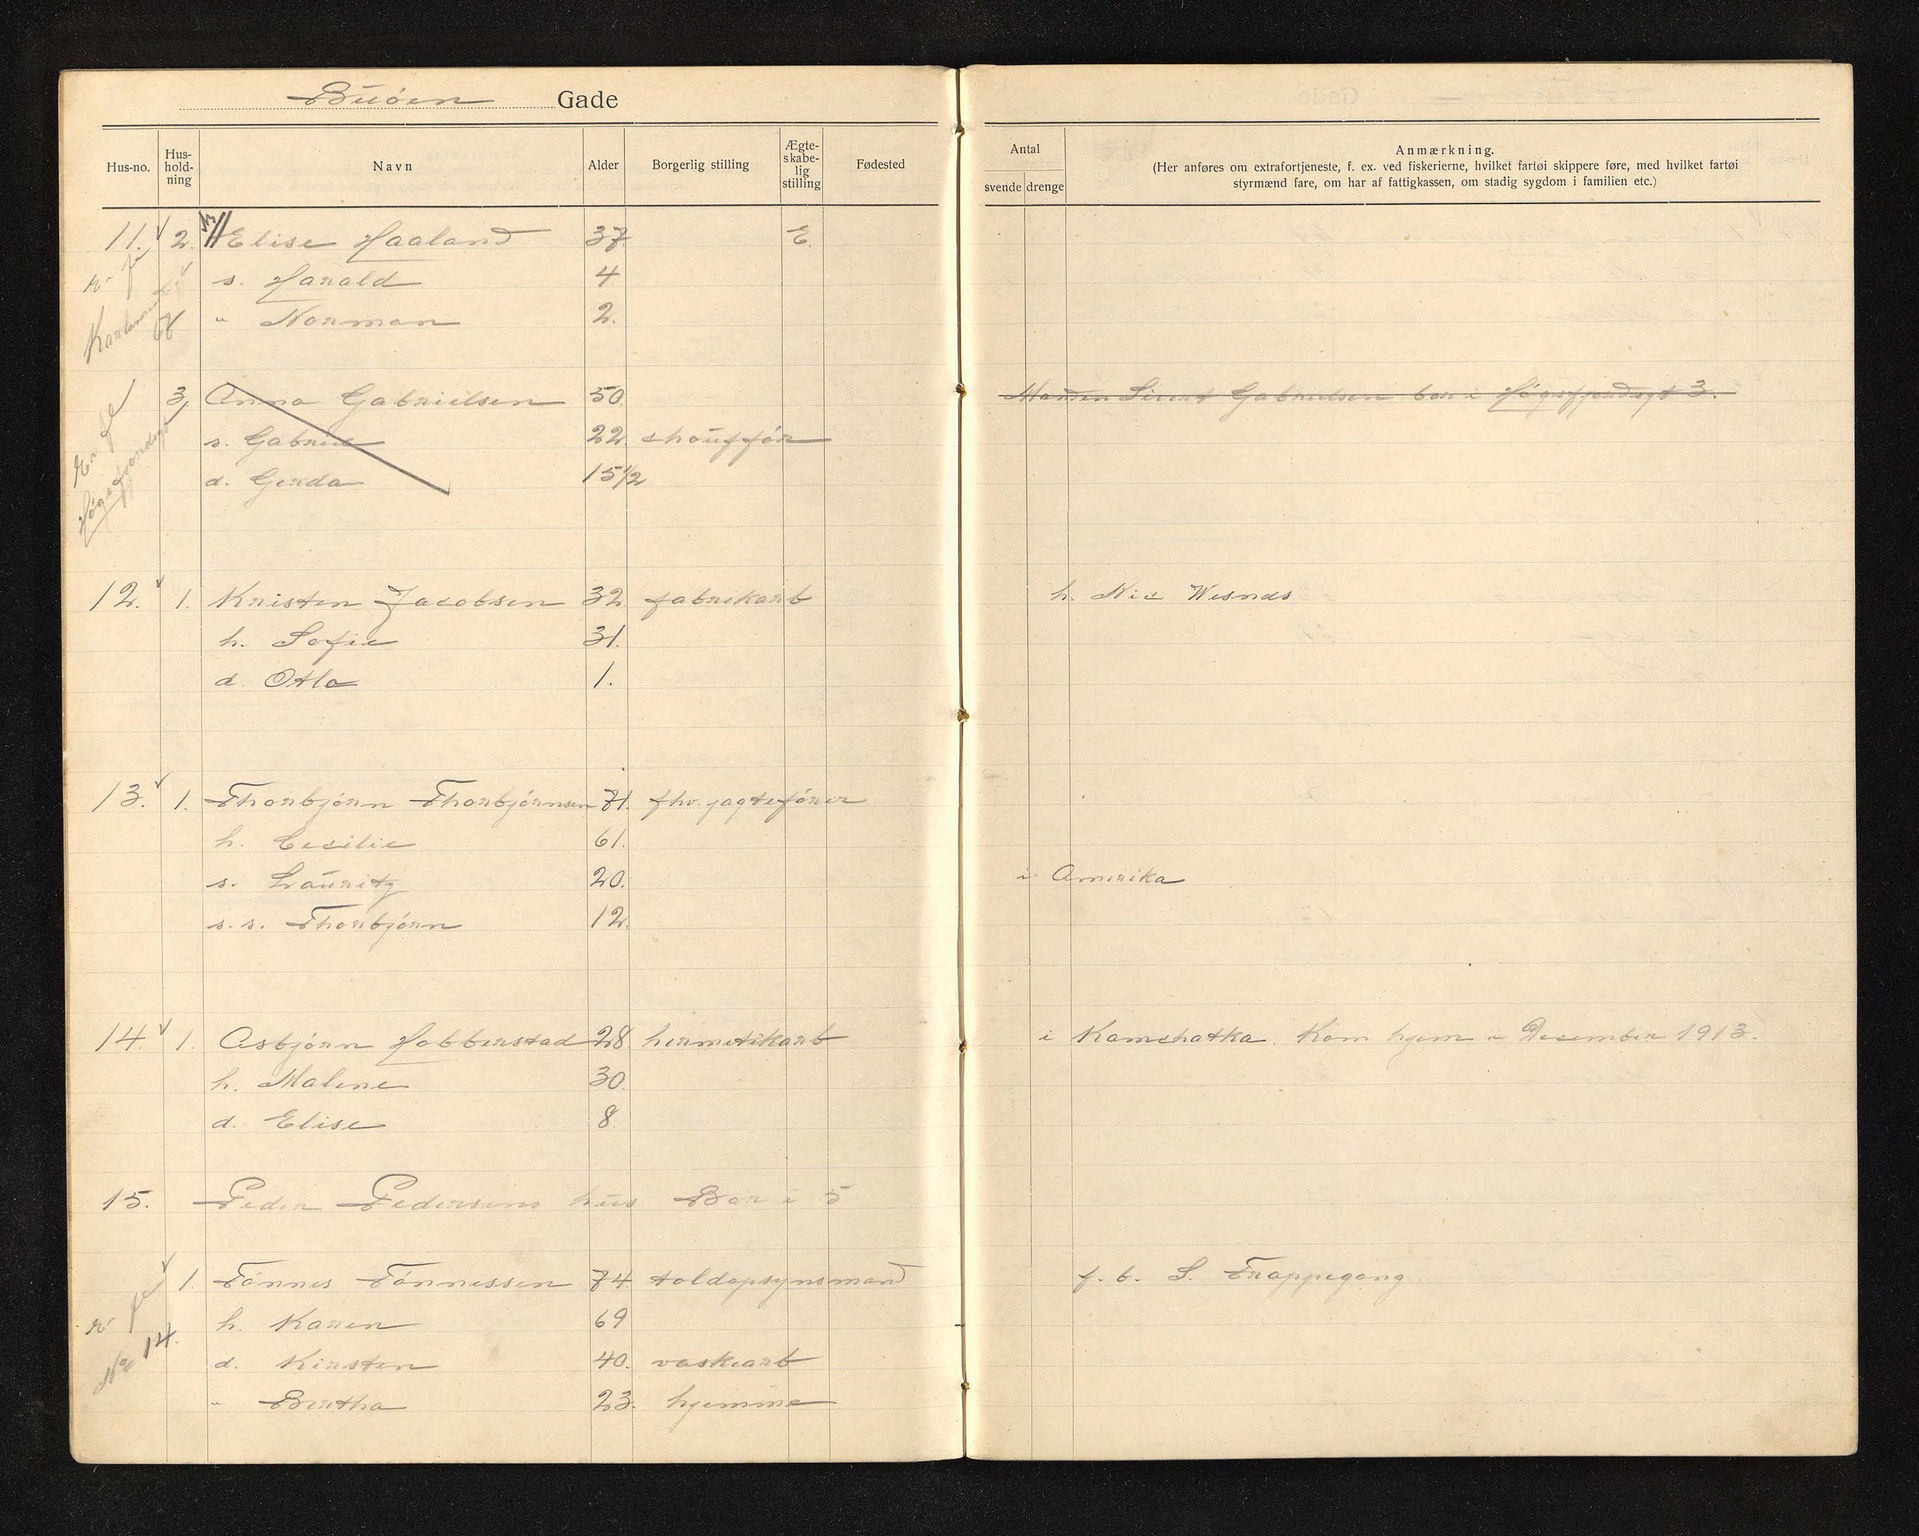 Buøen Gade
Hus-no. Hus-hold-ning Navn Alder Borgerlig stilling Ægte-skabe-lig stilling Fødested
Antal
svende drenge
Anmærkning.
(Her anføres om extrafortjeneste, f. ex. ved fiskerierne, hvilket fartøi skippere føre, med hvilket fartøi
styrmænd fare, om har af fattigkassen, om stadig sygdom i familien etc.)
11. 2. Elise Haaland 37. E.
s. Harald 4
" Norman 2.
68
3, Anna Gabrielsen 50. Manden Sivert Gabrielsen bor i Høgsfjordsgt 3.
s. Gabriel 22 chouffør
d. Gerda 15 1/2
12. 1. Kristen Jacobsen 32 fabrikarb h. Nic Wesnes
h. Sofie 31.
d. Otla 1.
13. 1. Thorbjørn Thorbjørnsen 71. fhv. jagtefører
h. Cecilie 61.
s. Lauritz 20. i Amerika
s. s. Thorbjørn 12.
14. 1. Asbjørn Hobberstad 28 hermetikarb i Kamchatka. Kom hjem i Desember 1913.
h. Malene 30.
d. Elise 8.
15. Peder Pedersens hus Bor i 5
1. Tønnes Tønnessen 74. toldopsynsmand f. b. S. Trappegang
h. Karen 69
No 14.
d. Kirsten 40. vaskearb
" Bertha 23. hjemme